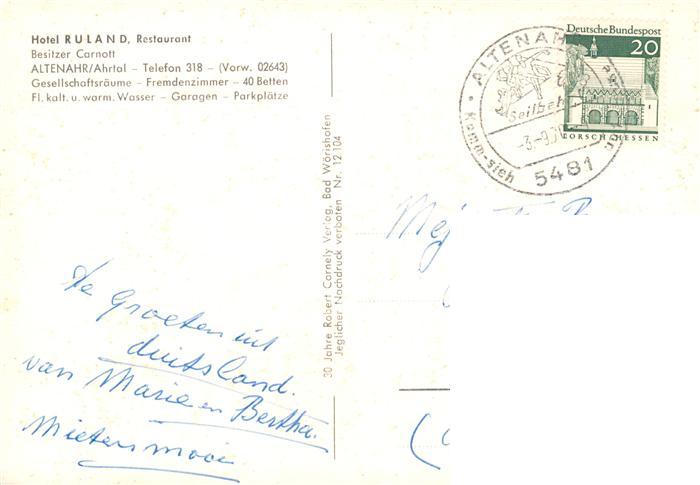 Hotel RULAND, Restaurant
Besitzer Carnott
ALTENAHR/Ahrtal – Telefon 318 – (Vorw. 02643)
Gesellschaftsräume – Fremdenzimmer – 40 Betten
Fl. kalt. u. warm. Wasser – Garagen – Parkplätze
ALTENAHR
Seilbahn
Komm-sieh
-3.-9.70
5481
Deutsche Bundespost
20
LORSCH/HESSEN
30 Jahre Robert Cornely Verlag, Bad Wörishofen
Jeglicher Nachdruck verboten Nr. 12 104
Mej
de Groeten uit
duitsland.
van Marie en Bertha.